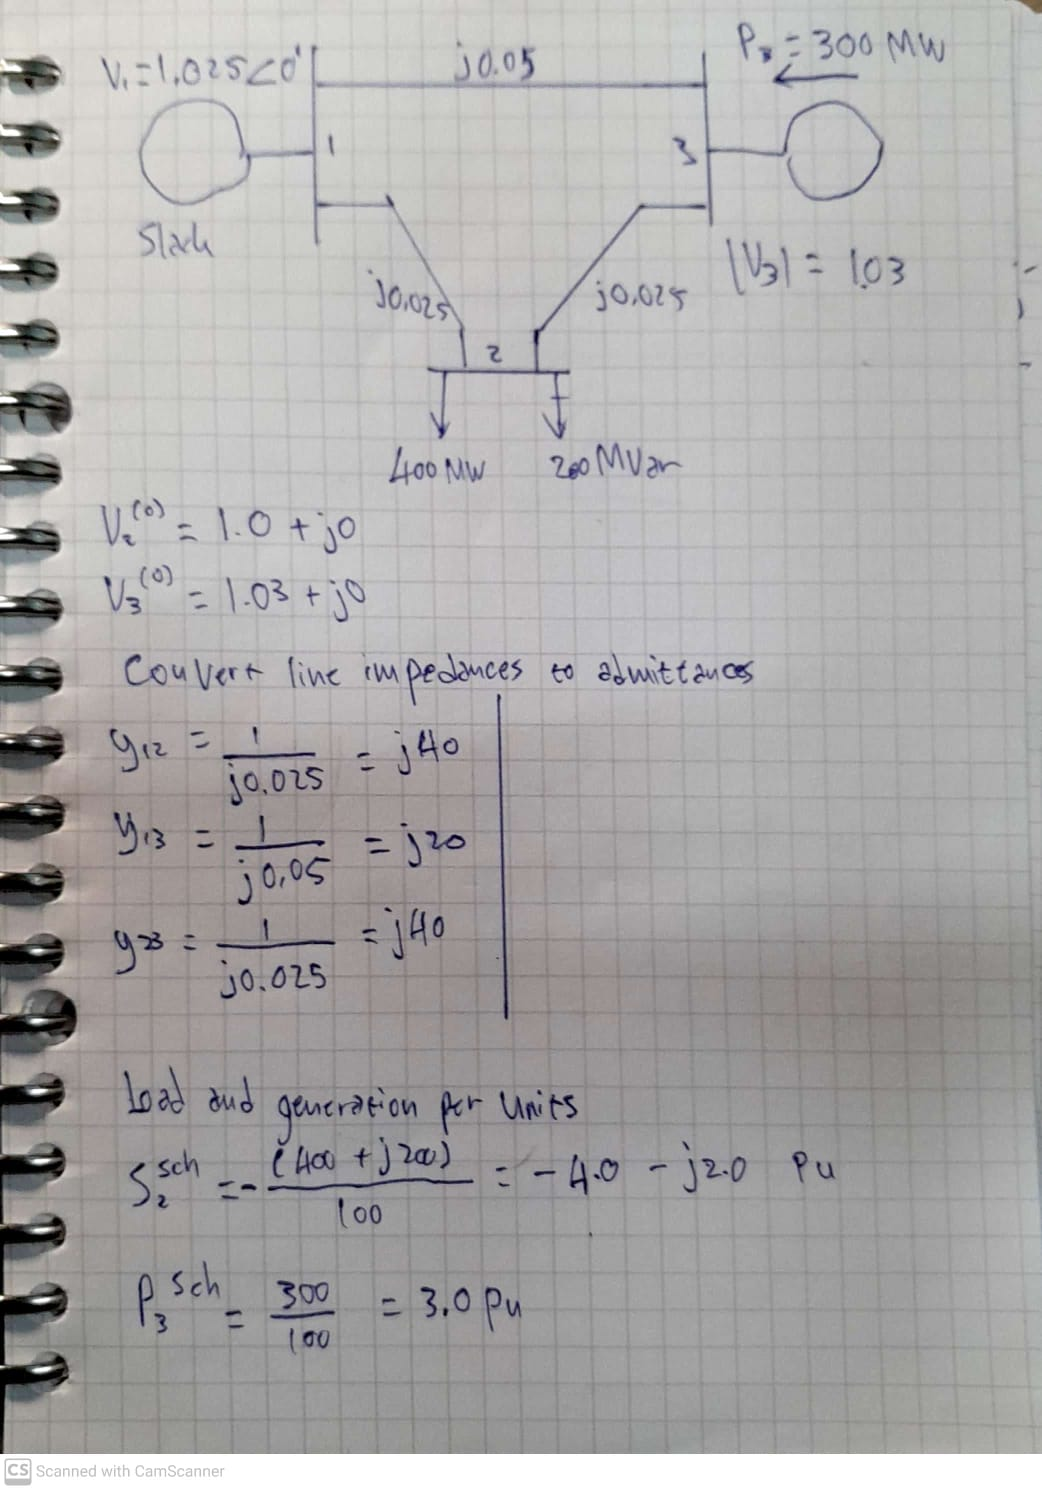 V₁=1.025∠0° j0.05 P₃ = 300 MW
1 3
Slack |V₃| = 1.03
j0.025 j0.025
2
400 MW 200 MVar
V₂⁽⁰⁾ = 1.0 + j0
V₃⁽⁰⁾ = 1.03 + j0
Convert line impedances to admittances
y₁₂ = 1/j0.025 = j40
y₁₃ = 1/j0.05 = j20
y₂₃ = 1/j0.025 = j40
Load and generation per Units
S₂ˢᶜʰ = - (400 + j200)/100 = - 4.0 - j2.0 Pu
P₃ˢᶜʰ = 300/100 = 3.0 Pu
CS Scanned with CamScanner